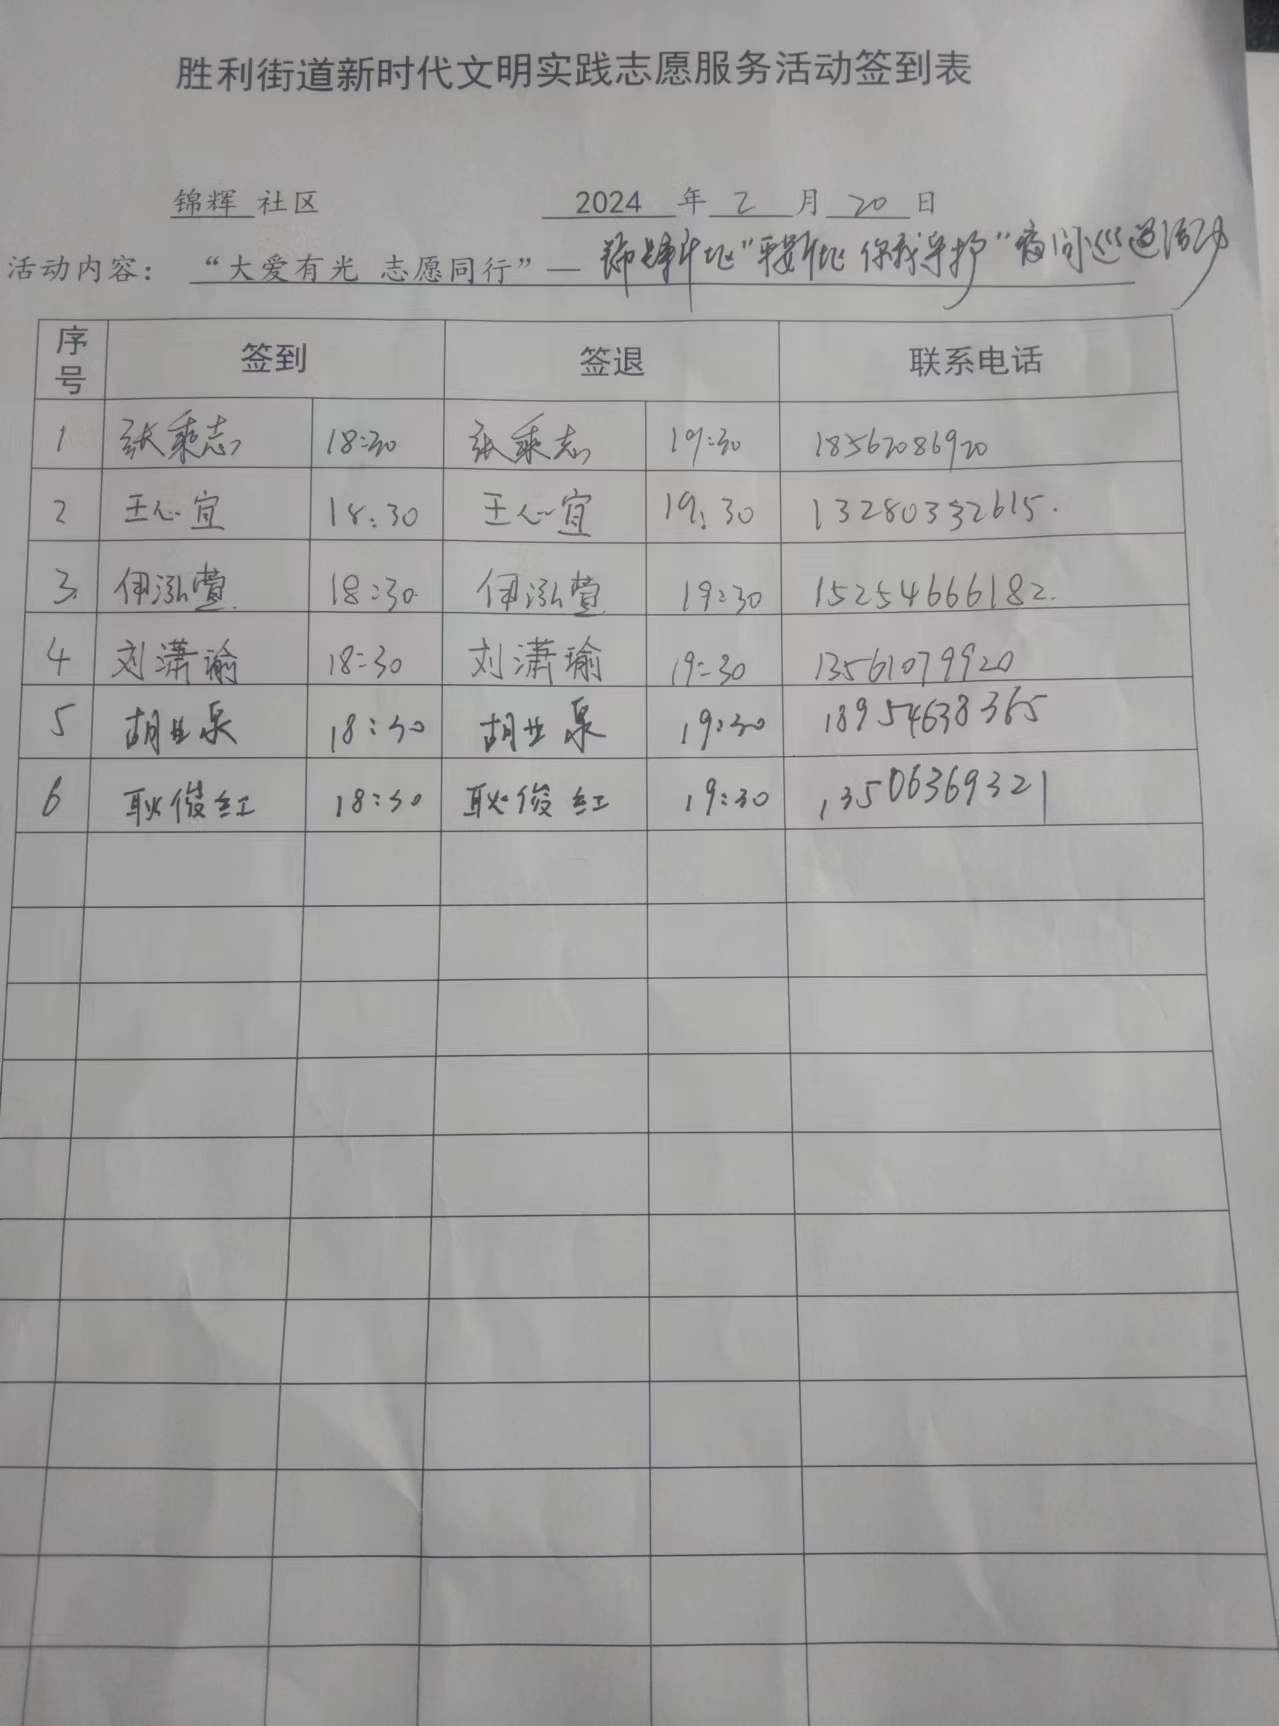 胜利街道新时代文明实践志愿服务活动签到表
锦辉 社区 2024 年 2 月 20 日
活动内容： “大爱有光 志愿同行”— “平安 你我守护”夜间巡逻活动
序号 签到 签退 联系电话
1 张乘志 18:30 张乘志 19:30 18562086920
2 王心宜 18:30 王心宜 19:30 13280332615.
3 伊泓萱 18:30 伊泓萱 19:30 15254666182.
4 刘潇瑜 18:30 刘潇瑜 19:30 13561079920
5 胡业泉 18:30 胡业泉 19:30 18954638365
6 耿俊红 18:30 耿俊红 19:30 13506369321